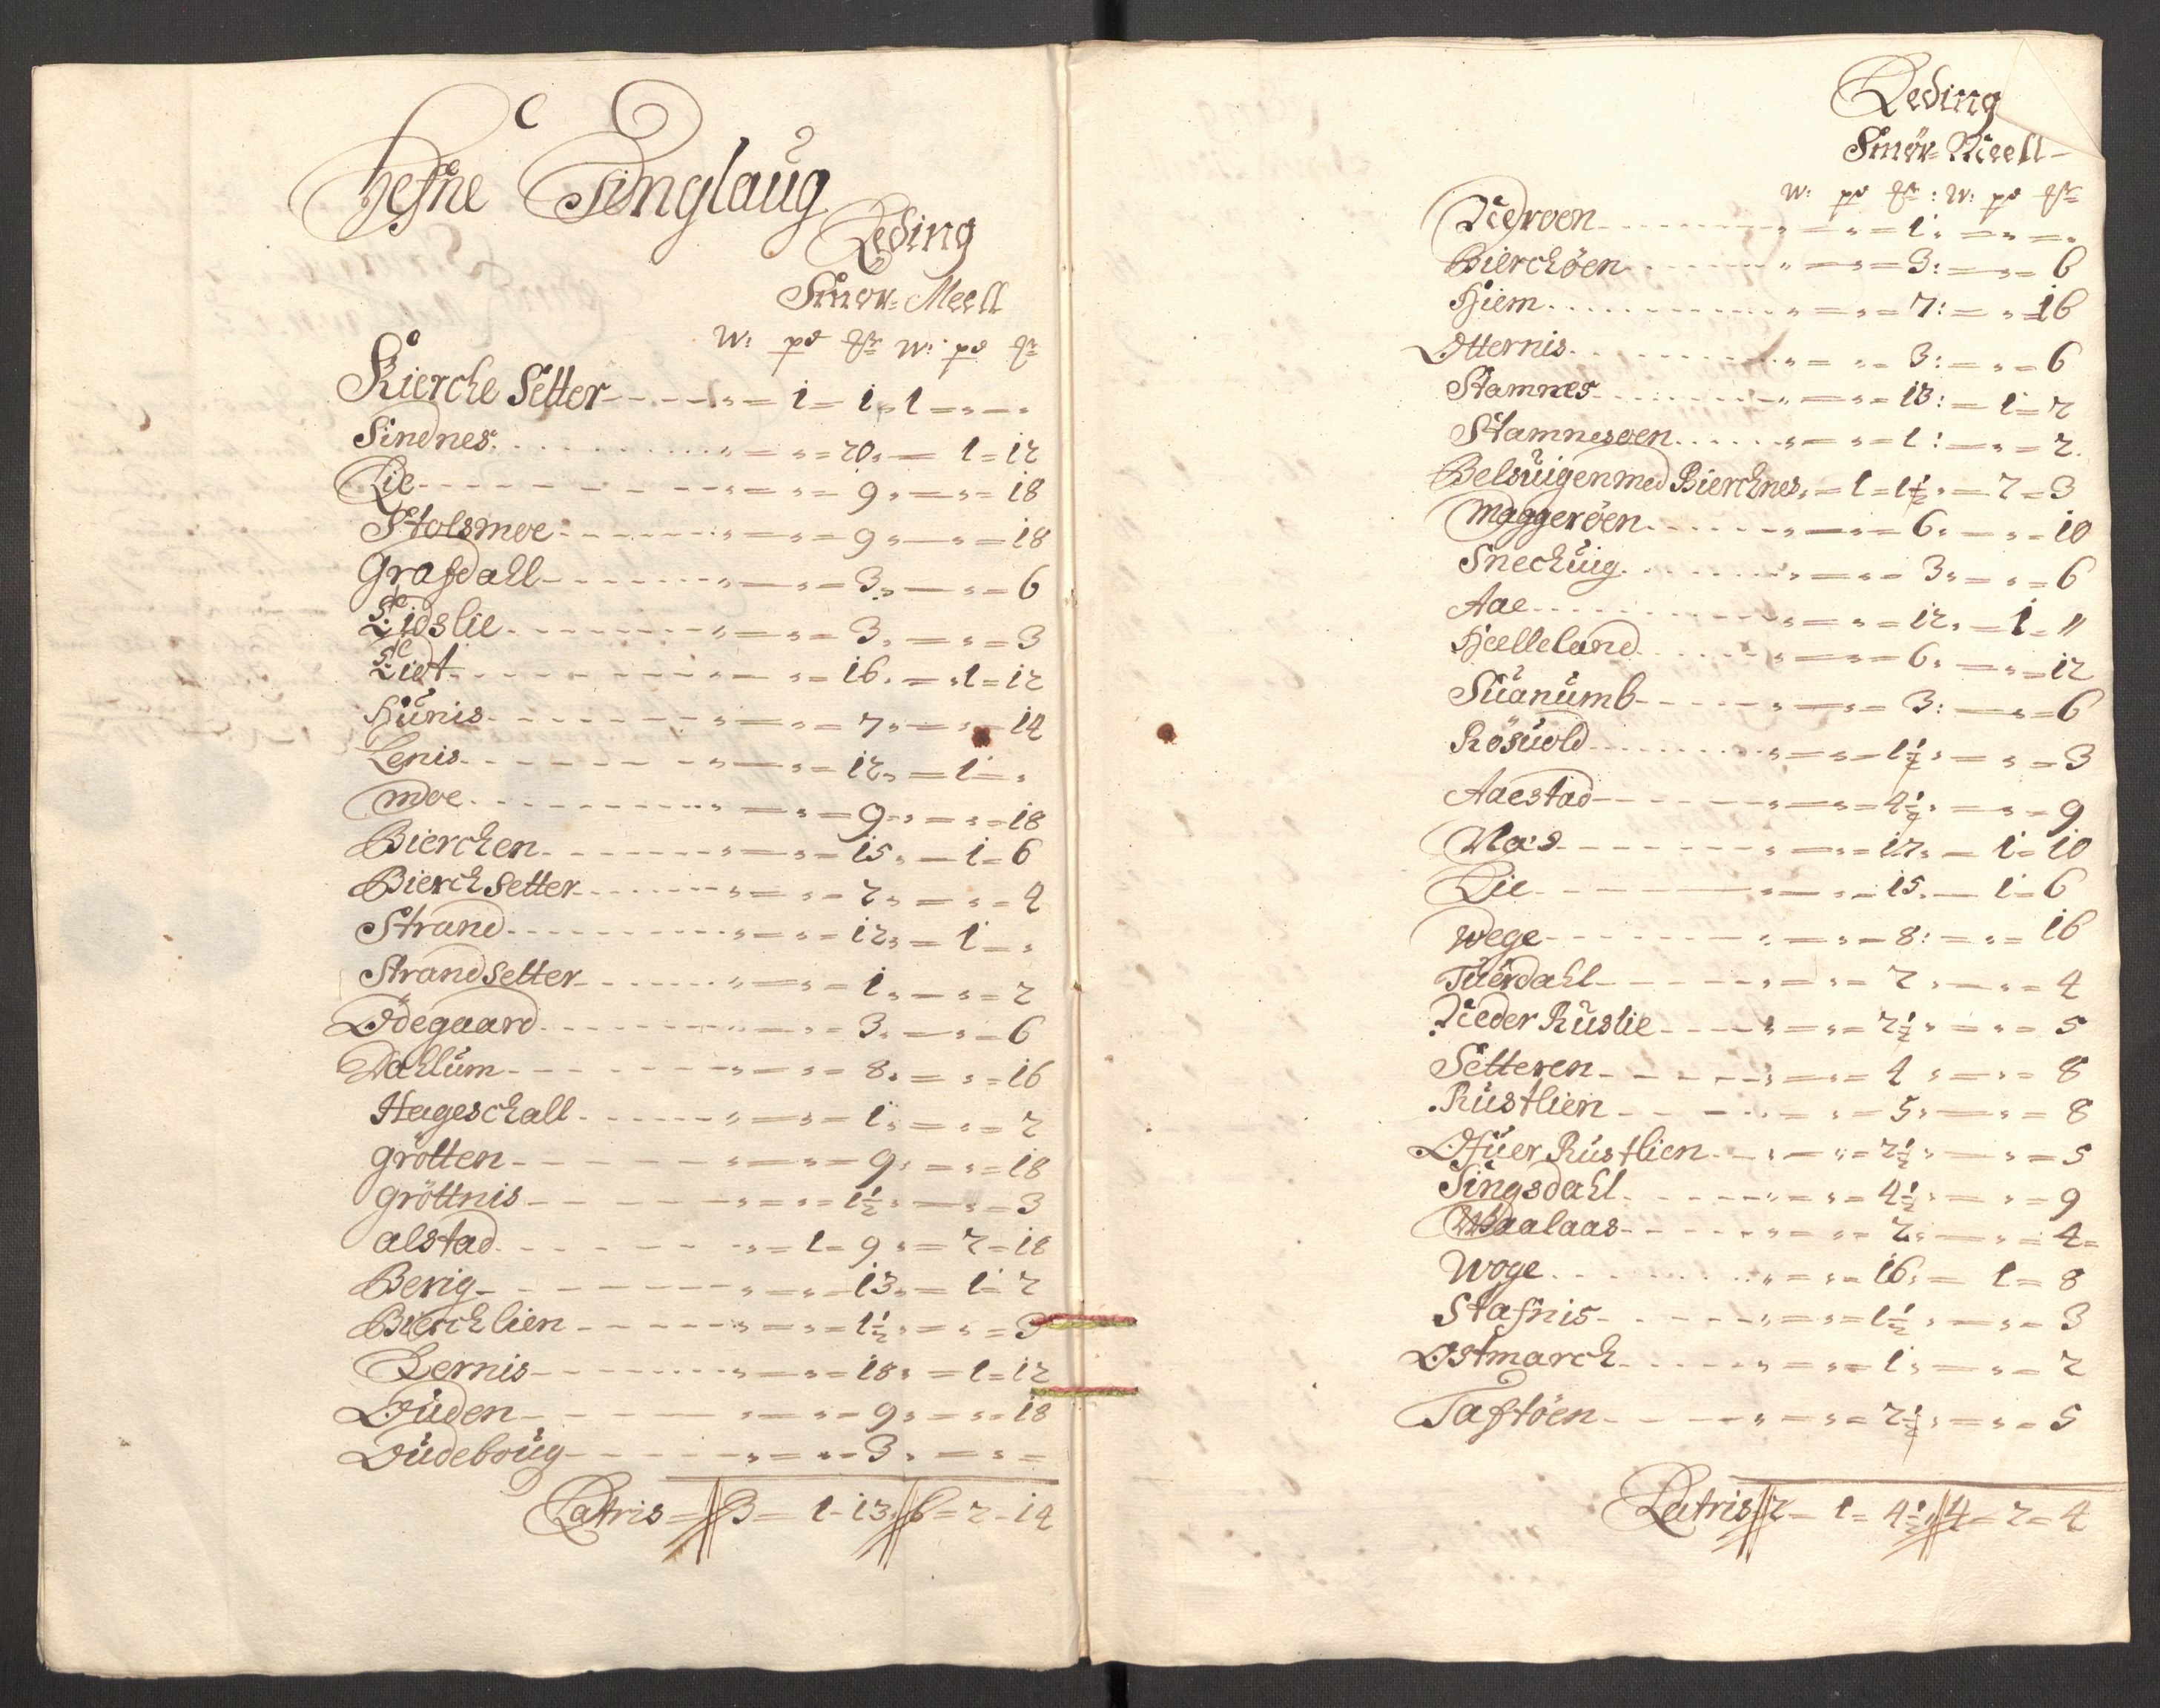 Hefne Tinglaug
Leding
Smör- Meell
W: pd ℔ W: pd ℔
Kierche Setter - - - - „ = 1 = 1 „ 1 = „ - „
Sindnes. . . . . „ = „ = 20 „ = 1 = 12
Lie - - - - „ = „ = 9 „ = „ = 18
Stolsmoe - - - - „ = „ = 9 „ = „ = 18
Grafdall - - - - „ = „ = 3 „ = „ = 6
Lidslie - - - - „ = „ = 3 „ = „ = 3
Liet - - - - „ = „ = 16 „ = 1 = 12
Hünis - - - - „ = „ = 7 „ = „ = 14
Lenis - - - - „ = „ = 12 „ = 1 = „
Moe - - - - „ = „ = 9 „ = „ = 18
Bierchen - - - - „ = „ = 15 „ = 1 = 6
Bierchsetter - - - - „ = „ = 2 „ = „ = 4
Strand - - - - „ = „ = 12 „ = 1 = „
Strandsetter - - - - „ = „ = 1 „ = „ = 2
Ödegaard - - - - „ = „ = 3 „ = „ = 6
Dahlum - - - - „ = „ = 8 „ = „ = 16
Hageschall - - - - „ = „ = 1 „ = „ = 2
grötten - - - - „ = „ = 9 „ = „ = 18
gröttnis - - - - „ = „ = 1½ „ = „ = 3
alstad - - - - „ = 1 = 9 „ = 2 = 18
Berig - - - - „ = „ = 13 „ = 1 = 2
Bierchlien - - - - „ = „ = 1½ „ = „ = 3
Lernis - - - - „ = „ = 18 „ = 1 = 12
Ouden - - - - „ = „ = 9 „ = „ = 18
Oudeboug - - - - „ = „ = 3 „ = „ =
Latris = 3 = 1 - 13 „ 6 = 2 - 14
Leding
Smör- Meell -
W: pd ℔ : W: pd ℔
Nedroen - - - - „ = „ = 1 „ = „ = „
Bierchöen - - - - „ = „ = 3: = „ = 6
Hiem . . . . „ = „ = 7: = „ = 16
Otternis . . . . „ = „ = 3: = „ = 6
Stamnes - - - - „ = „ = 13: = 1 = 2
Stamnesoen . . . . „ = „ = 1: = „ = 2
Belsuigen med Bierchnes „ = 1 = 1½ „ = 2 = 3
Maggeröen - - - - „ = „ = 6 „ = „ = 10
Snechuig - - - - „ = „ = 3 „ = „ = 6
Aae - - - - „ = „ = 12 „ = 1 = „
Heelleland - - - - „ = „ = 6 „ = „ = 12
Suanumb - - - - „ = „ = 3: = „ = 6
Rösuold - - - - „ = „ = 1½ „ = „ = 3
Aaestad - - - - „ = „ = 4½ „ = „ = 9
Maes - - - - „ = „ = 17 „ = 1 = 10
Lie - - - - „ = „ = 15 „ = 1 = 6
Wege - - - - „ = „ = 8: = „ = 16
Tuerdahl - - - - „ = „ = 2 „ = „ = 4
Neder Rustlie - - - - „ = „ = 2½ „ = „ = 5
Setteren - - - - „ = „ = 4 „ = „ = 8
Rustlien - - - - „ = „ = 5 „ = „ = 8
Ofuer Rustlien - - - - „ = „ = 2½ „ = „ = 5
Singsdahl - - - - „ = „ = 4½ „ = „ = 9
Waalaas - - - - „ = „ = 2 „ = „ = 4 =
Woge . . . . „ = „ = 16 „ = 1 = 8
Stafnis - - - - „ = „ = 1½ „ = „ = 3
Ostmarch - - - - „ = „ = 1 „ = „ = 2
Taftöen - - - - „ = „ = 2½ „ = „ = 5
Latris 2 = 1 = 4½ „ 4 = 2 = 4